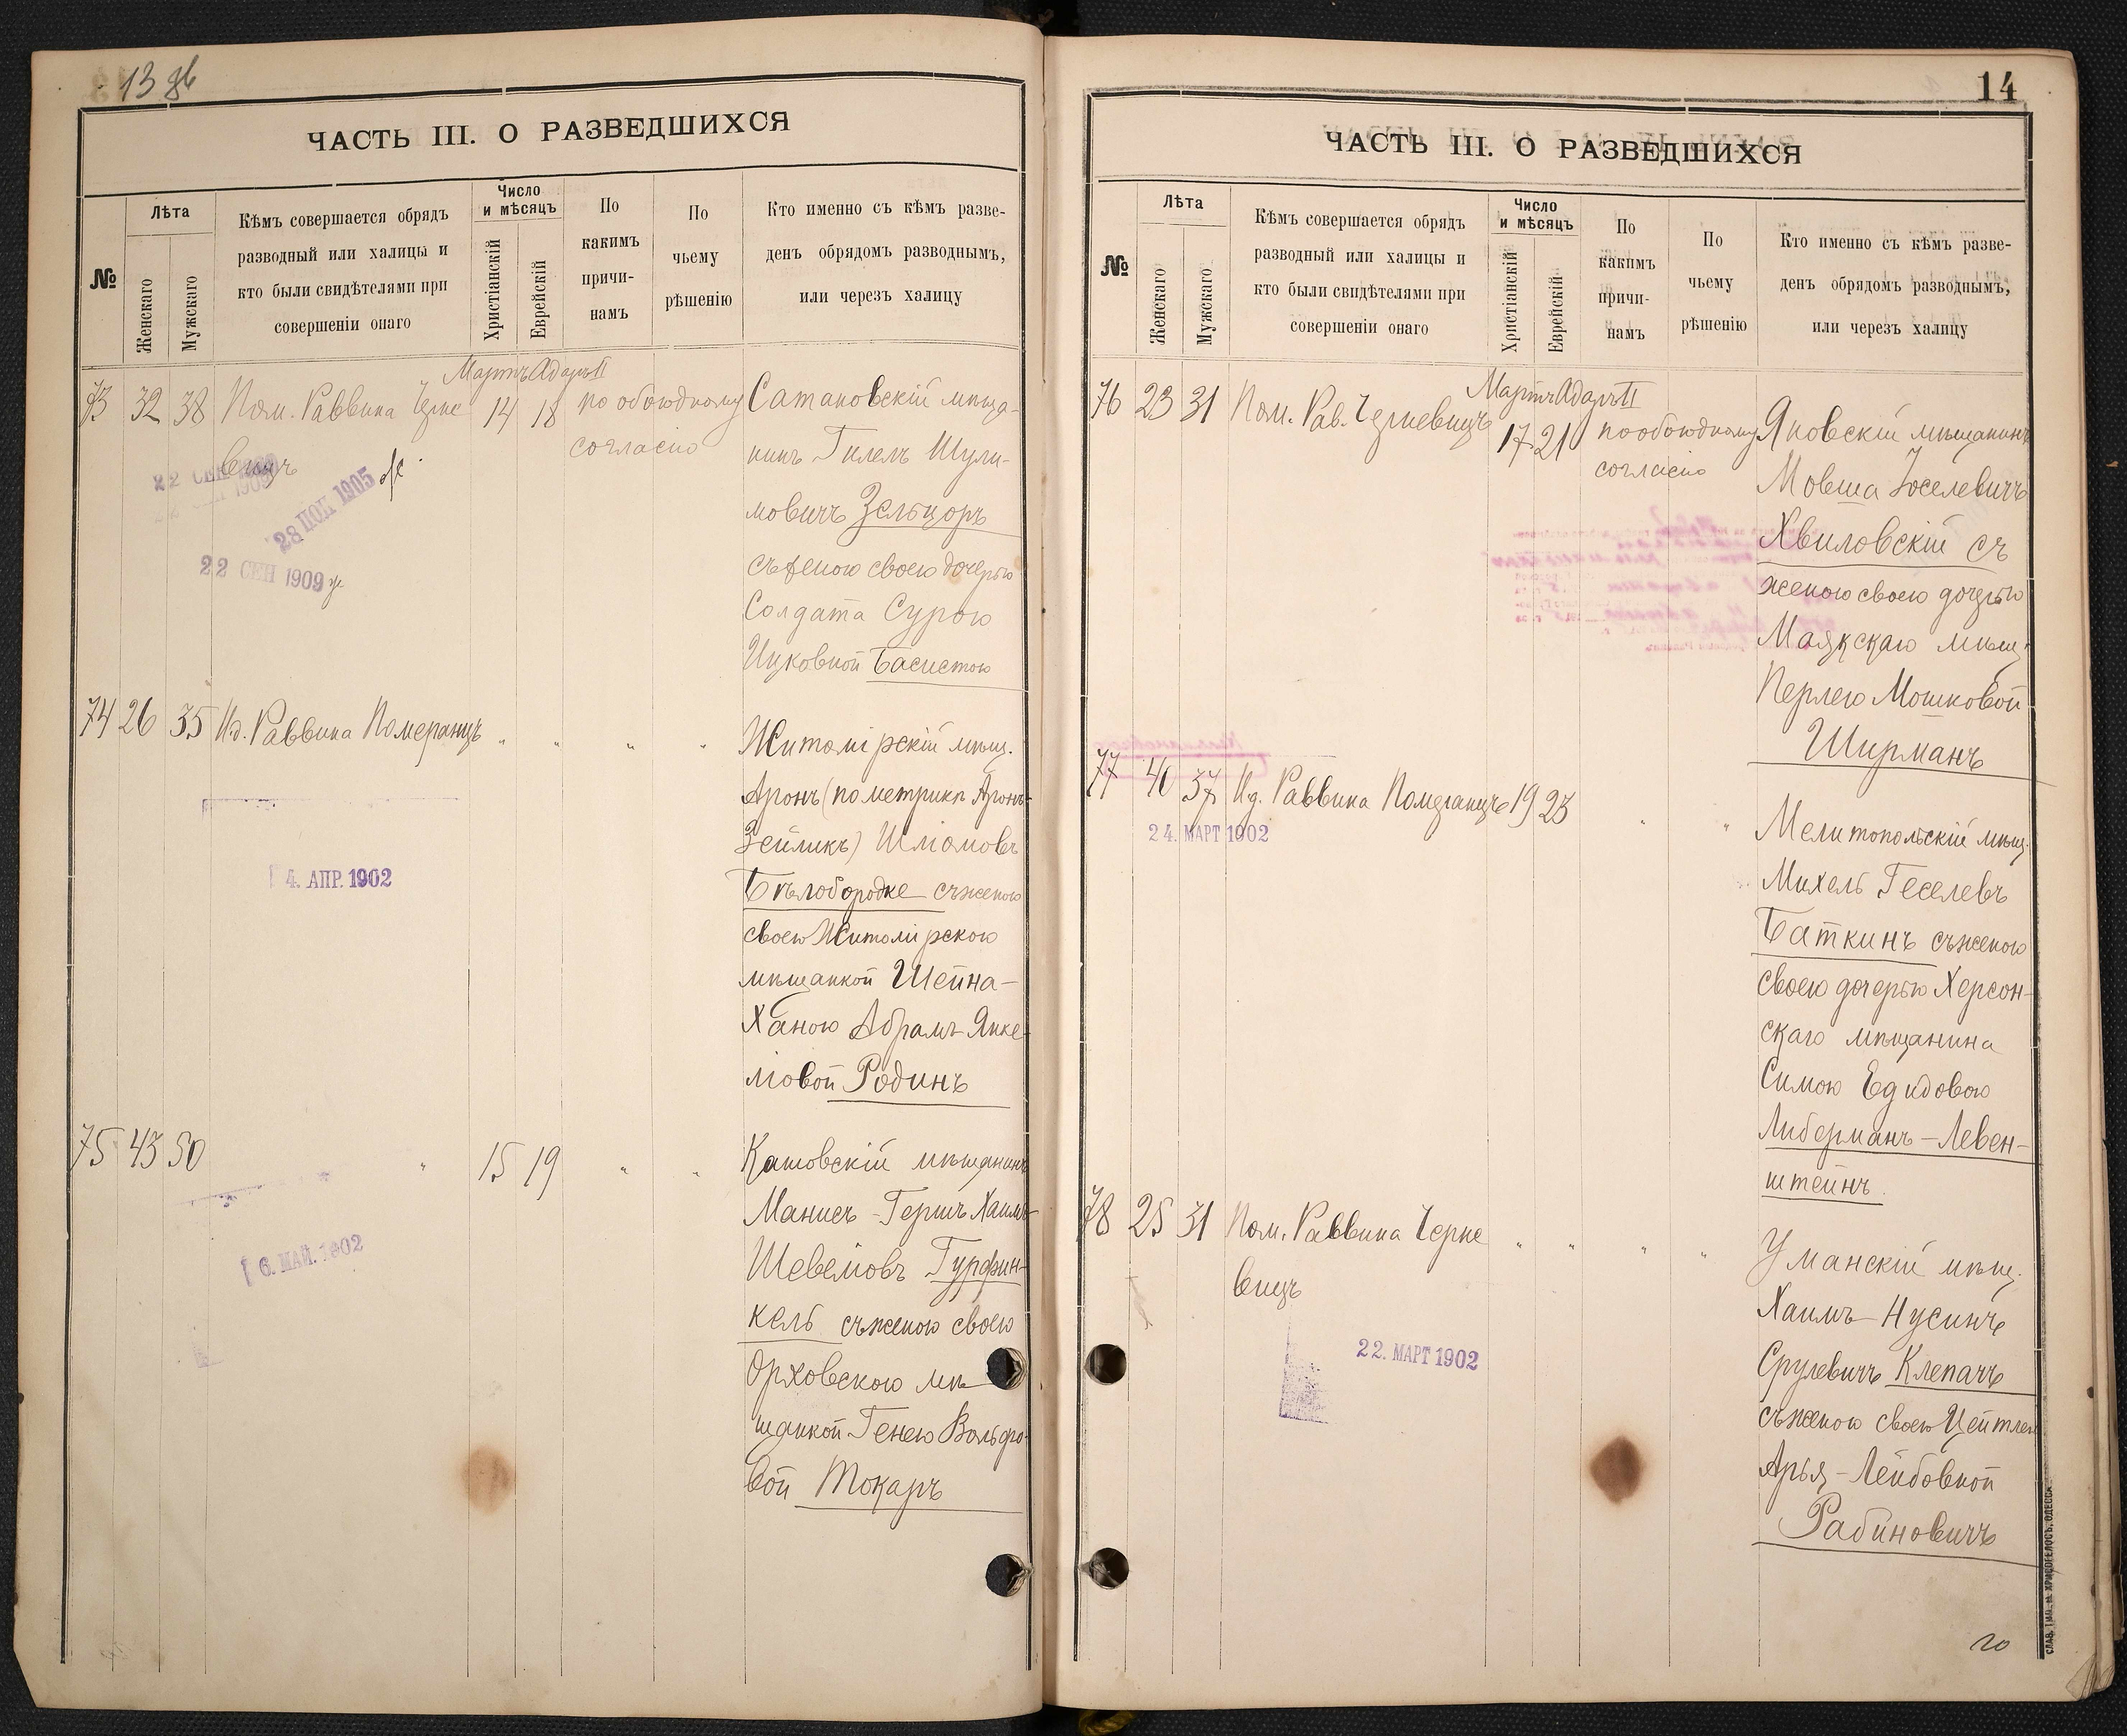 13 об
ЧАСТЬ III. О РАЗВЕДШИХСЯ
№
Лѣта
Женскаго
Мужскаго
Кѣмъ совершается обрядъ
разводный или халицы и
кто были свидѣтелями при
совершеніи онаго
Число
и мѣсяцъ
Христіанскій
Еврейскій
По
какимъ
причи-
намъ
По
чьему
рѣшенію
Кто именно съ кѣмъ разве-
денъ обрядомъ разводнымъ,
или черезъ халицу
Мартъ Адаръ II
73 32 38 Пом. Раввина Черке
вицъ
14 18
по обоюдному
согласію
22 СЕН 1909
28 1905
22 СЕН 1909
Сатановскій мѣща-
нинъ Гилель Шули-
мовичъ Зельцоръ
съ женою своею дочерью
Солдата Сурою
Ицковной Басистою
74 26 35 И.д. Раввина Померанцъ " " " "
4. АПР. 1902
Житомірскій мѣщ.
Аронъ (по метрикѣ Аронъ-
Зейликъ) Шліомовъ
Бѣлобородке съ женою
своею Житомірскою
мѣщанкой Шейна-
Ханою Абрамъ-Янке-
лiовой Родинъ
75 43 50 " 15 19 " "
6. МАЙ. 1902
Катовскій мѣщанинъ
Манисъ-Гершъ Хаимъ-
Шевеліовъ Гурфин-
кель съ женою своею
Орховскою мѣ
щанкой Генею Вольфо-
вой Токарь
14
ЧАСТЬ III. О РАЗВЕДШИХСЯ
№
Лѣта
Женскаго
Мужскаго
Кѣмъ совершается обрядъ
разводный или халицы и
кто были свидѣтелями при
совершеніи онаго
Число
и мѣсяцъ
Христіанскій
Еврейскій
По
какимъ
причи-
намъ
По
чьему
рѣшенію
Кто именно съ кѣмъ разве-
денъ обрядомъ разводнымъ,
или черезъ халицу
Мартъ Адаръ II
76 23 31 Пом. Рав. Черкевицъ
17 21
по обоюдному
согласію
Яновскій мѣщанинъ
Мовша Іоселевичъ
Хвиловскій съ
женою своею дочерью
Маякскаго мѣщ.
Перлею Мошковой
Ширманъ
77 40 37 И.д. Раввина Померанцъ 19 23 " "
24. МАРТ 1902
Мелитопольскій мѣщ.
Михель Геселевъ
Баткинъ съ женою
своею дочерью Херсон-
скаго мѣщанина
Симою Едидовою
Либерманъ-Левен-
штейнъ.
78 25 31 Пом. Раввина Черке
вицъ
" " " "
22. МАРТ 1902
Уманскій мѣщ.
Хаимъ-Нусинъ
Срулевичъ Клепачъ
съ женою своею Цейтлею
Арья-Лейбовной
Рабиновичъ